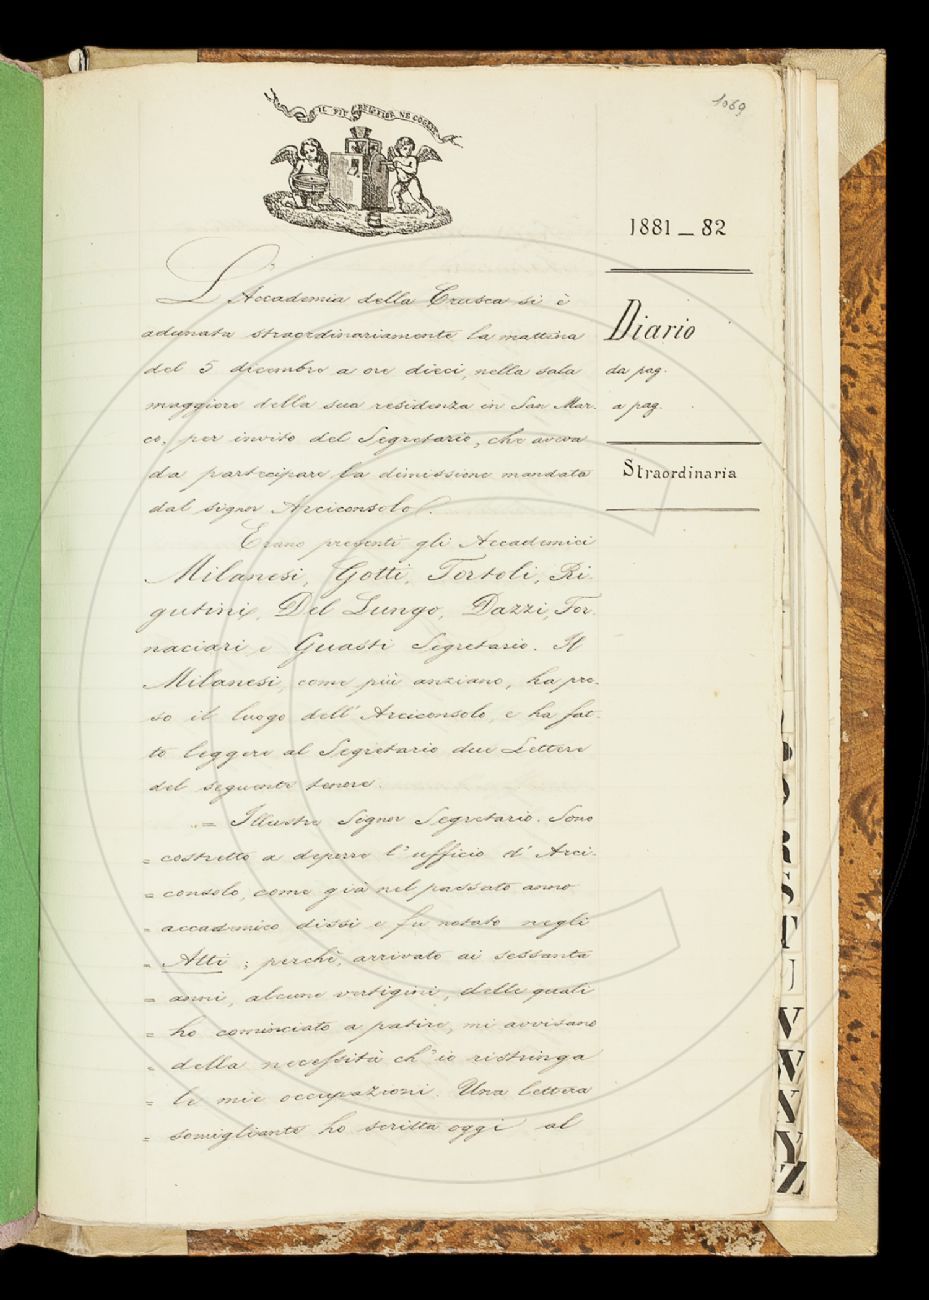 IL PIÙ BEL FIOR NE COGLIE
1069
1881 — 82
Diario
da pag.
a pag.
Straordinaria
L'Accademia della Crusca si è
adunata straordinariamente la mattina
del 5 dicembre a ore dieci, nella sala
maggiore della sua residenza in San Mar-
co, per invito del Segretario, che aveva
da partecipare la dimissione mandata
dal signor Arciconsolo.
Erano presenti gli Accademici
Milanesi, Gotti, Tortoli, Ri-
gutini, Del Lungo, Dazzi, For-
naciari e Guasti Segretario. Il
Milanesi, come più anziano, ha pre-
so il luogo dell'Arciconsolo, e ha fat-
to leggere al Segretario due Lettere
del seguente tenore.
= Illustre Signor Segretario. Sono
= costretto a deporre l'ufficio d'Arci-
= consolo, come già nel passato anno
= accademico dissi e fu notato negli
= Atti; perchè, arrivato ai sessanta
= anni, alcune vertigini, delle quali
= ho cominciato a patire, mi avvisano
= della necessità ch'io ristringa
= le mie occupazioni. Una lettera
= somigliante ho scritta oggi al
R
S
T
U
V
W
X
Y
Z